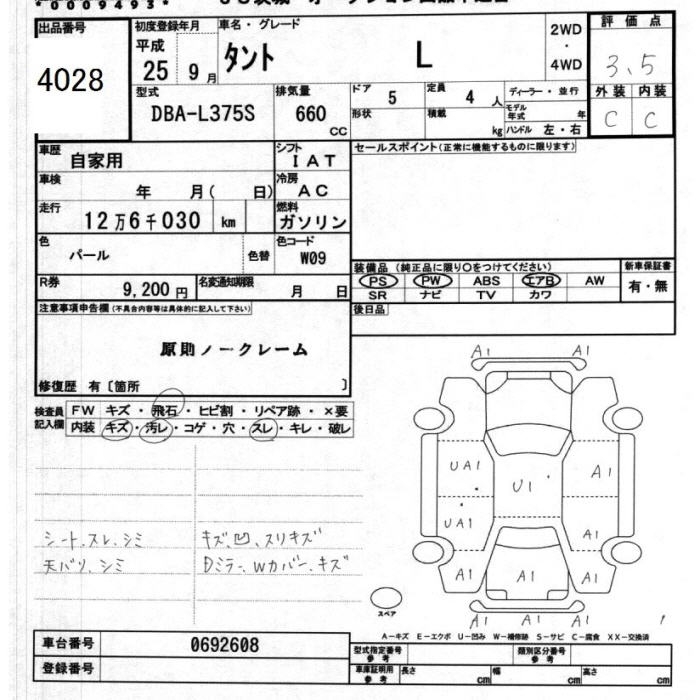 *0009493*
出品番号
4028
初度登録年月
平成
25 9月
車名・グレード
タント L
2WD
・
4WD
評価点
3.5
外装 内装
C C
型式
DBA-L375S
排気量
660
CC
ドア 5
定員 4 人
形状
積載 kg
ディーラー・並行
モデル年式 年
ハンドル 左・右
車歴
自家用
シフト
IAT
セールスポイント(正常に機能するものに限ります)
車検
年 月( 日)
冷房
AC
走行
12万6千030 km
燃料
ガソリン
色
パール
色替
色コード
W09
装備品(純正品に限り○をつけてください)
PS PW ABS エアB AW
SR ナビ TV カワ
新車保証書
有・無
R券
9,200円
名変通知期限
月 日
後日品
注意事項申告欄(不具合内容等は具体的に記入して下さい)
原則ノークレーム
修復歴 有〔箇所 〕
検査員記入欄
FW キズ・飛石・ヒビ割・リペア跡・×要
内装 キズ・汚レ・コゲ・穴・スレ・キレ・破レ
シート、スレ、シミ
天バリ、シミ
キズ、凹、スリキズ
Dミラー、Wカバー、キズ
A1
A1 A1
UA1 U1 A1
UA1 A1
A1 A1 A1
A1 A1 A1
スペア
A－キズ E－エクボ U－凹み W－補修跡 S－サビ C－腐食 XX－交換済
車台番号
0692608
登録番号
型式指定番号
参考
類別区分番号
参考
車庫証明用
参考
長さ cm
幅 cm
高さ cm